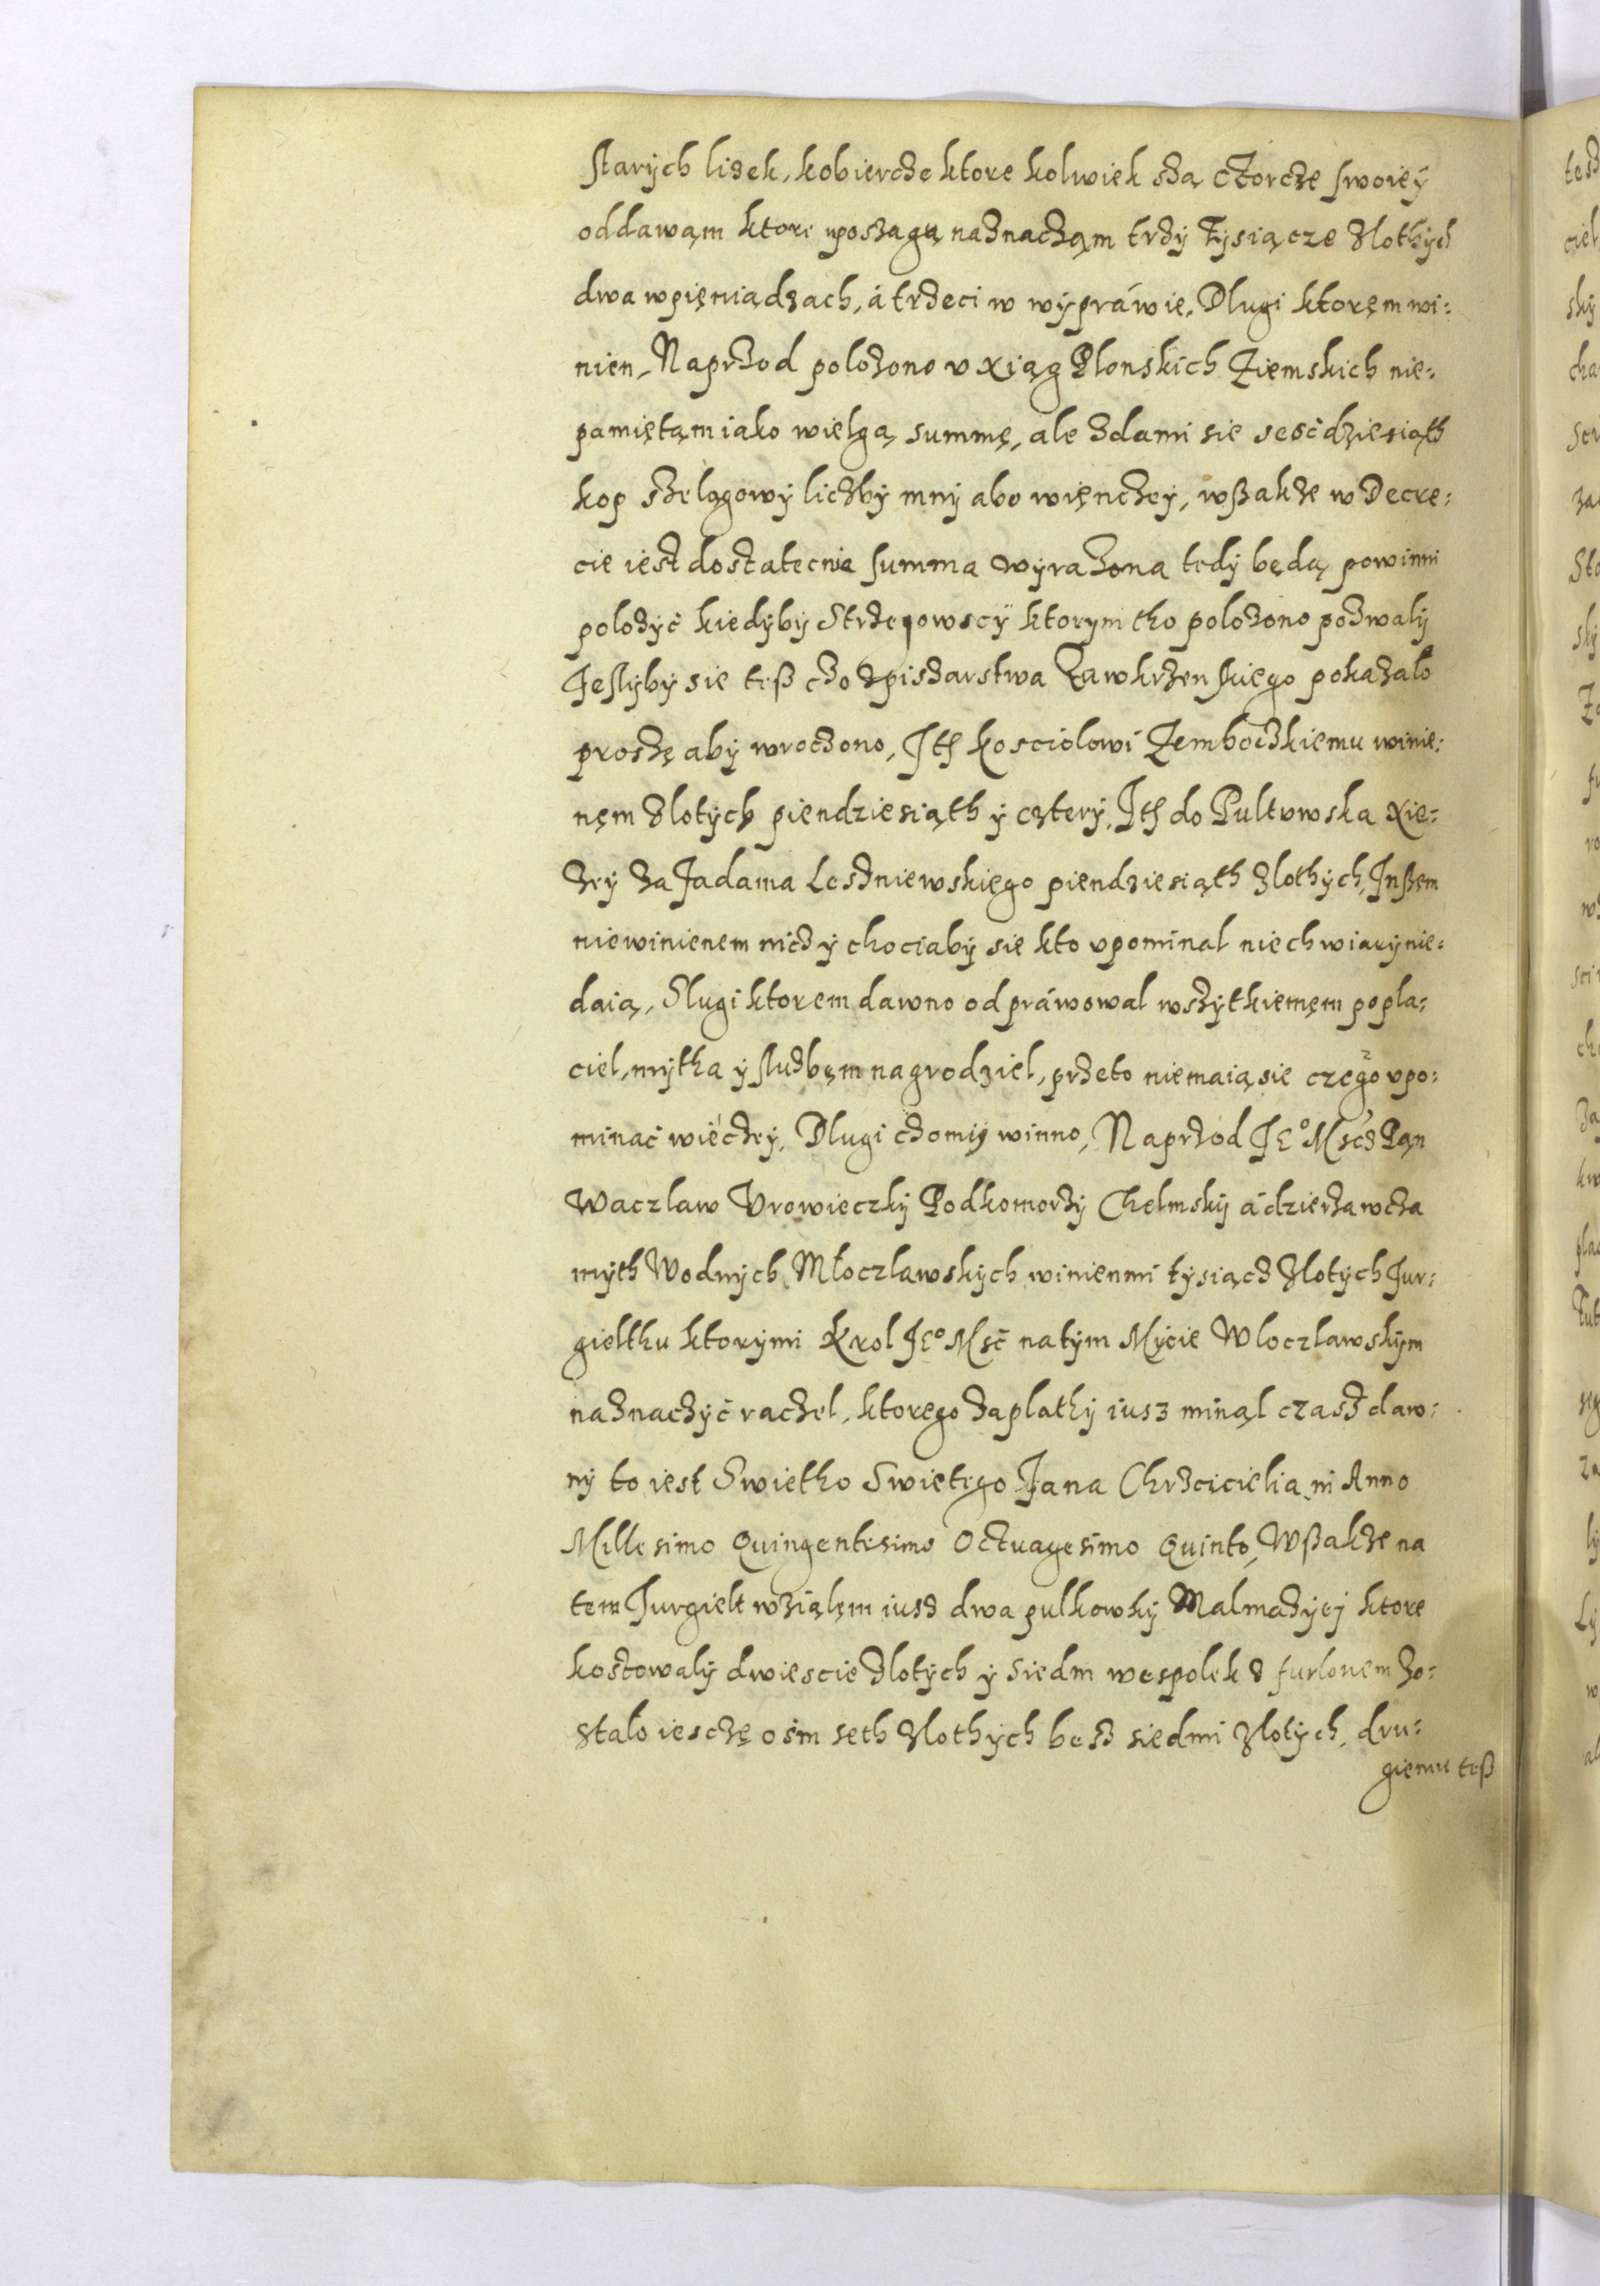 starych lisek, kobiercze ktore kolwiek szą czorcze swoiey
oddawąm ktore uposagą naznacząm trzy Tysiącze zlothych
dwa wpięniądzach, á trzeci w wypráwie. Dlugi ktoręm wi-
nien, Naprzod polozono v xiąg Plonskich Ziemskich nie-
pamiętąm iako wielgą summę, ale zdami sie sescdziesiąth
kop szelągowy liczby mni abo więnczey, wßakze w Decre-
cie iest dostatecnie summa wyrazona tedy będą powinni
polozyć kiedyby Strzegowscy ktorym tho polozono pozwaly
Jeslyby sie teß czo zpisarstwa Zawkrzenskiego pokazalo
proszę aby wroczono, Ith kosciolowi Zemboczkiemu winie-
nęm zlotych piendziesiąth y cztery, Ith do Pultowska xie-
zey za Jadama Leszniewskięgo piendziesiąth zlothych, Inßem
niewinienem nicz y chociaby sie kto vpominal niech wiary nie-
daią, Slugi ktorem dawno odpráwowal wszytkiemęm popla-
ciel, mytha y sluzbęm nagrodziel, przeto niemaią sie czego vpo-
minać wiéczey, Dlugi czomy winno, Naprzod JEo Mscz Pąn
Waczlaw Vrowieczky Podkomorzy Chelmsky á dzierzawcza
myth Wodnych Włoczlawskych winienmi tysiącz zlotych Jur-
gielthu ktorymi Krol JEo Msć natym Mycie Wloczlawskym
naznaczyć raczel, ktorego zaplathy iusz minąl czasz daw-
ny to iest Swietho Swietego Jana Chrzciciela in Anno
Millesimo Quingentesimo Octuagesimo Quinto, Wßakze na
tem Jurgielt wziąlęm iusz dwa pulkowky Malmazyej ktore
kosztowaly dwiescie zlotych y siedm wespolek z furlonem zo-
stalo iesczę ośm seth zlothych besz siedmi zlotych, dru-
giemu teß